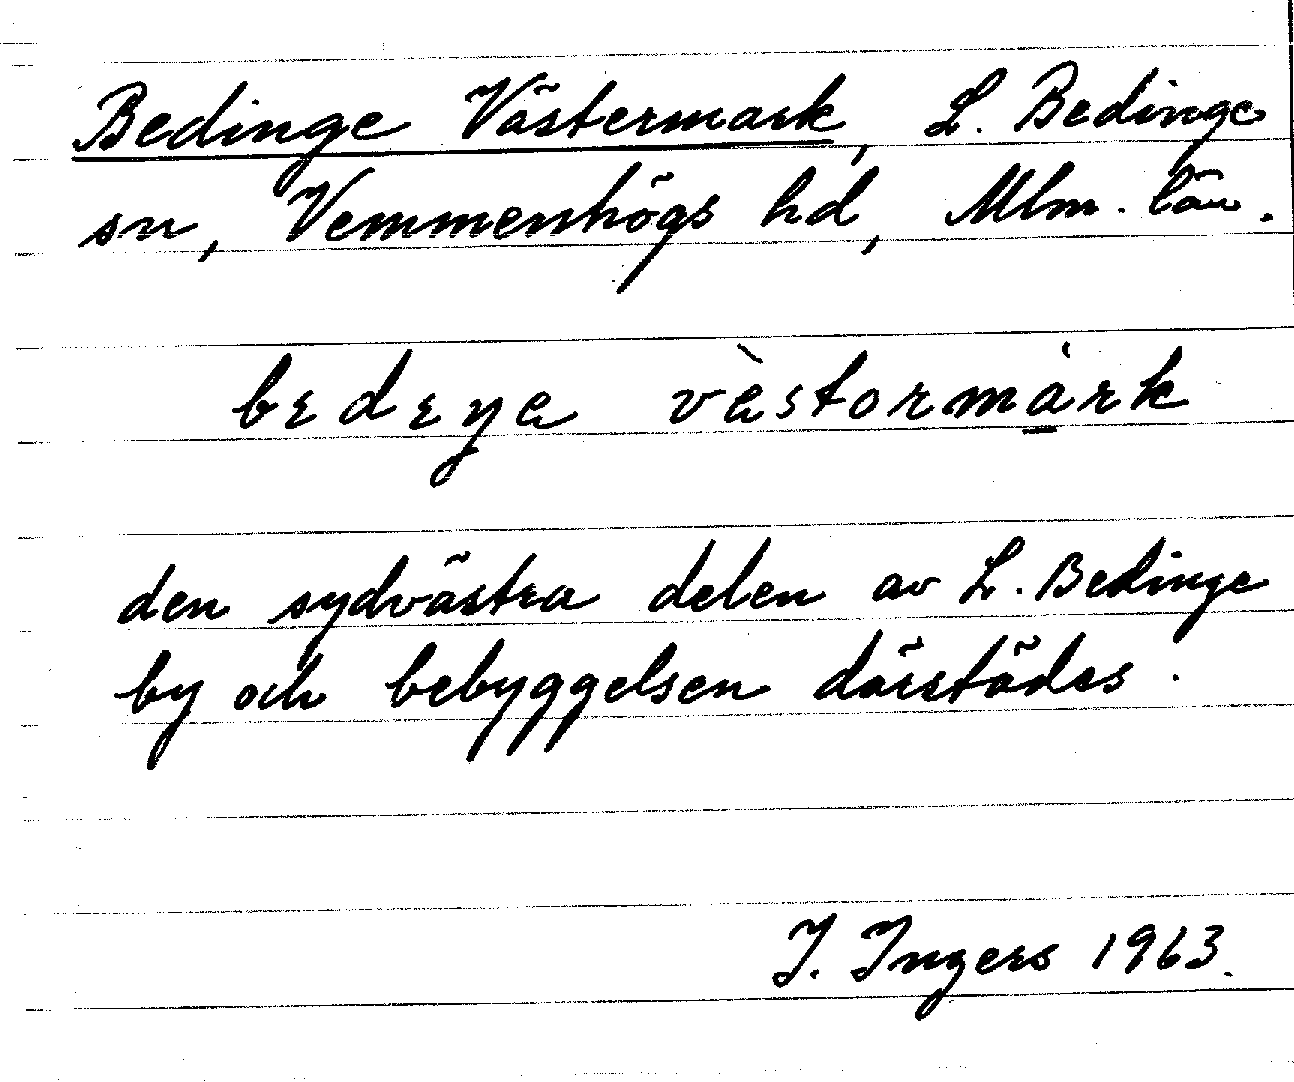 Bedinge Västermark, L. Bedinge
sn, Vemmenhögs hd, Mlm. län.
bedeŋa vàstormárk
den sydvästra delen av L. Bedinge
by och bebyggelsen därstädes.
I. Ingers 1963.